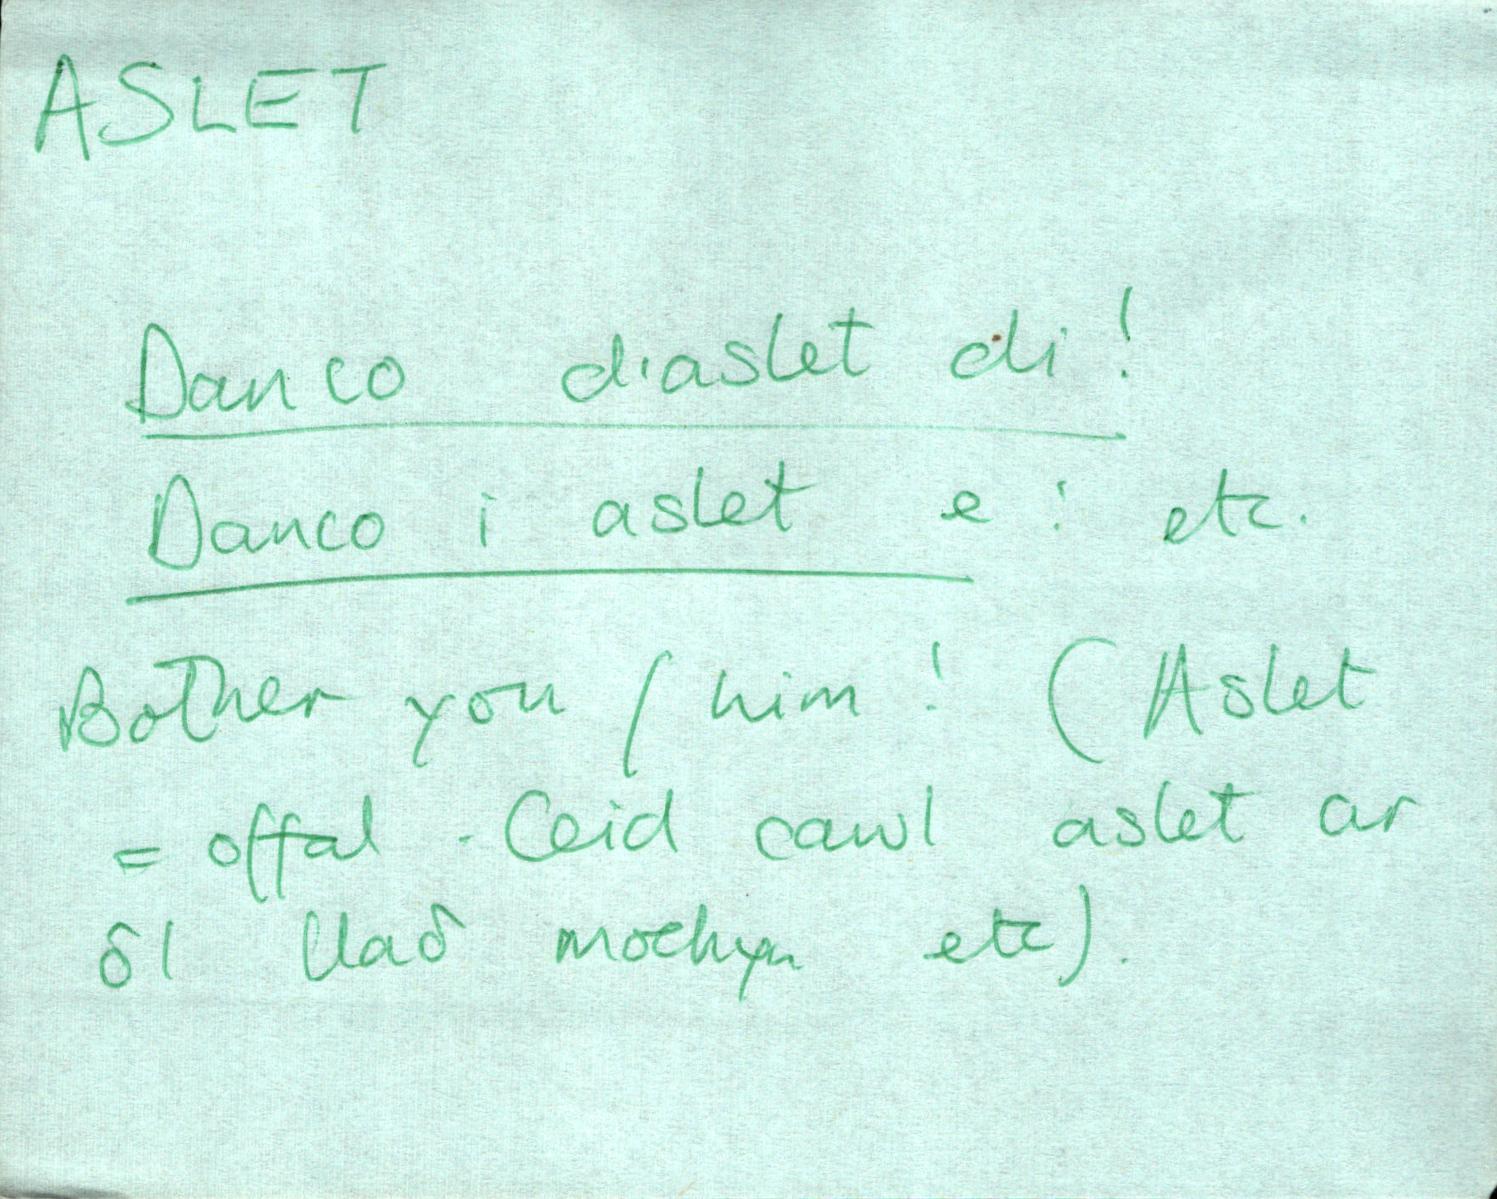 ASLET
Danco d'aslet di!
Danco i aslet e! etc.
Bother you / him! (Aslet
= offal. Ceid cawl aslet ar
δl llaδ mochyn etc).